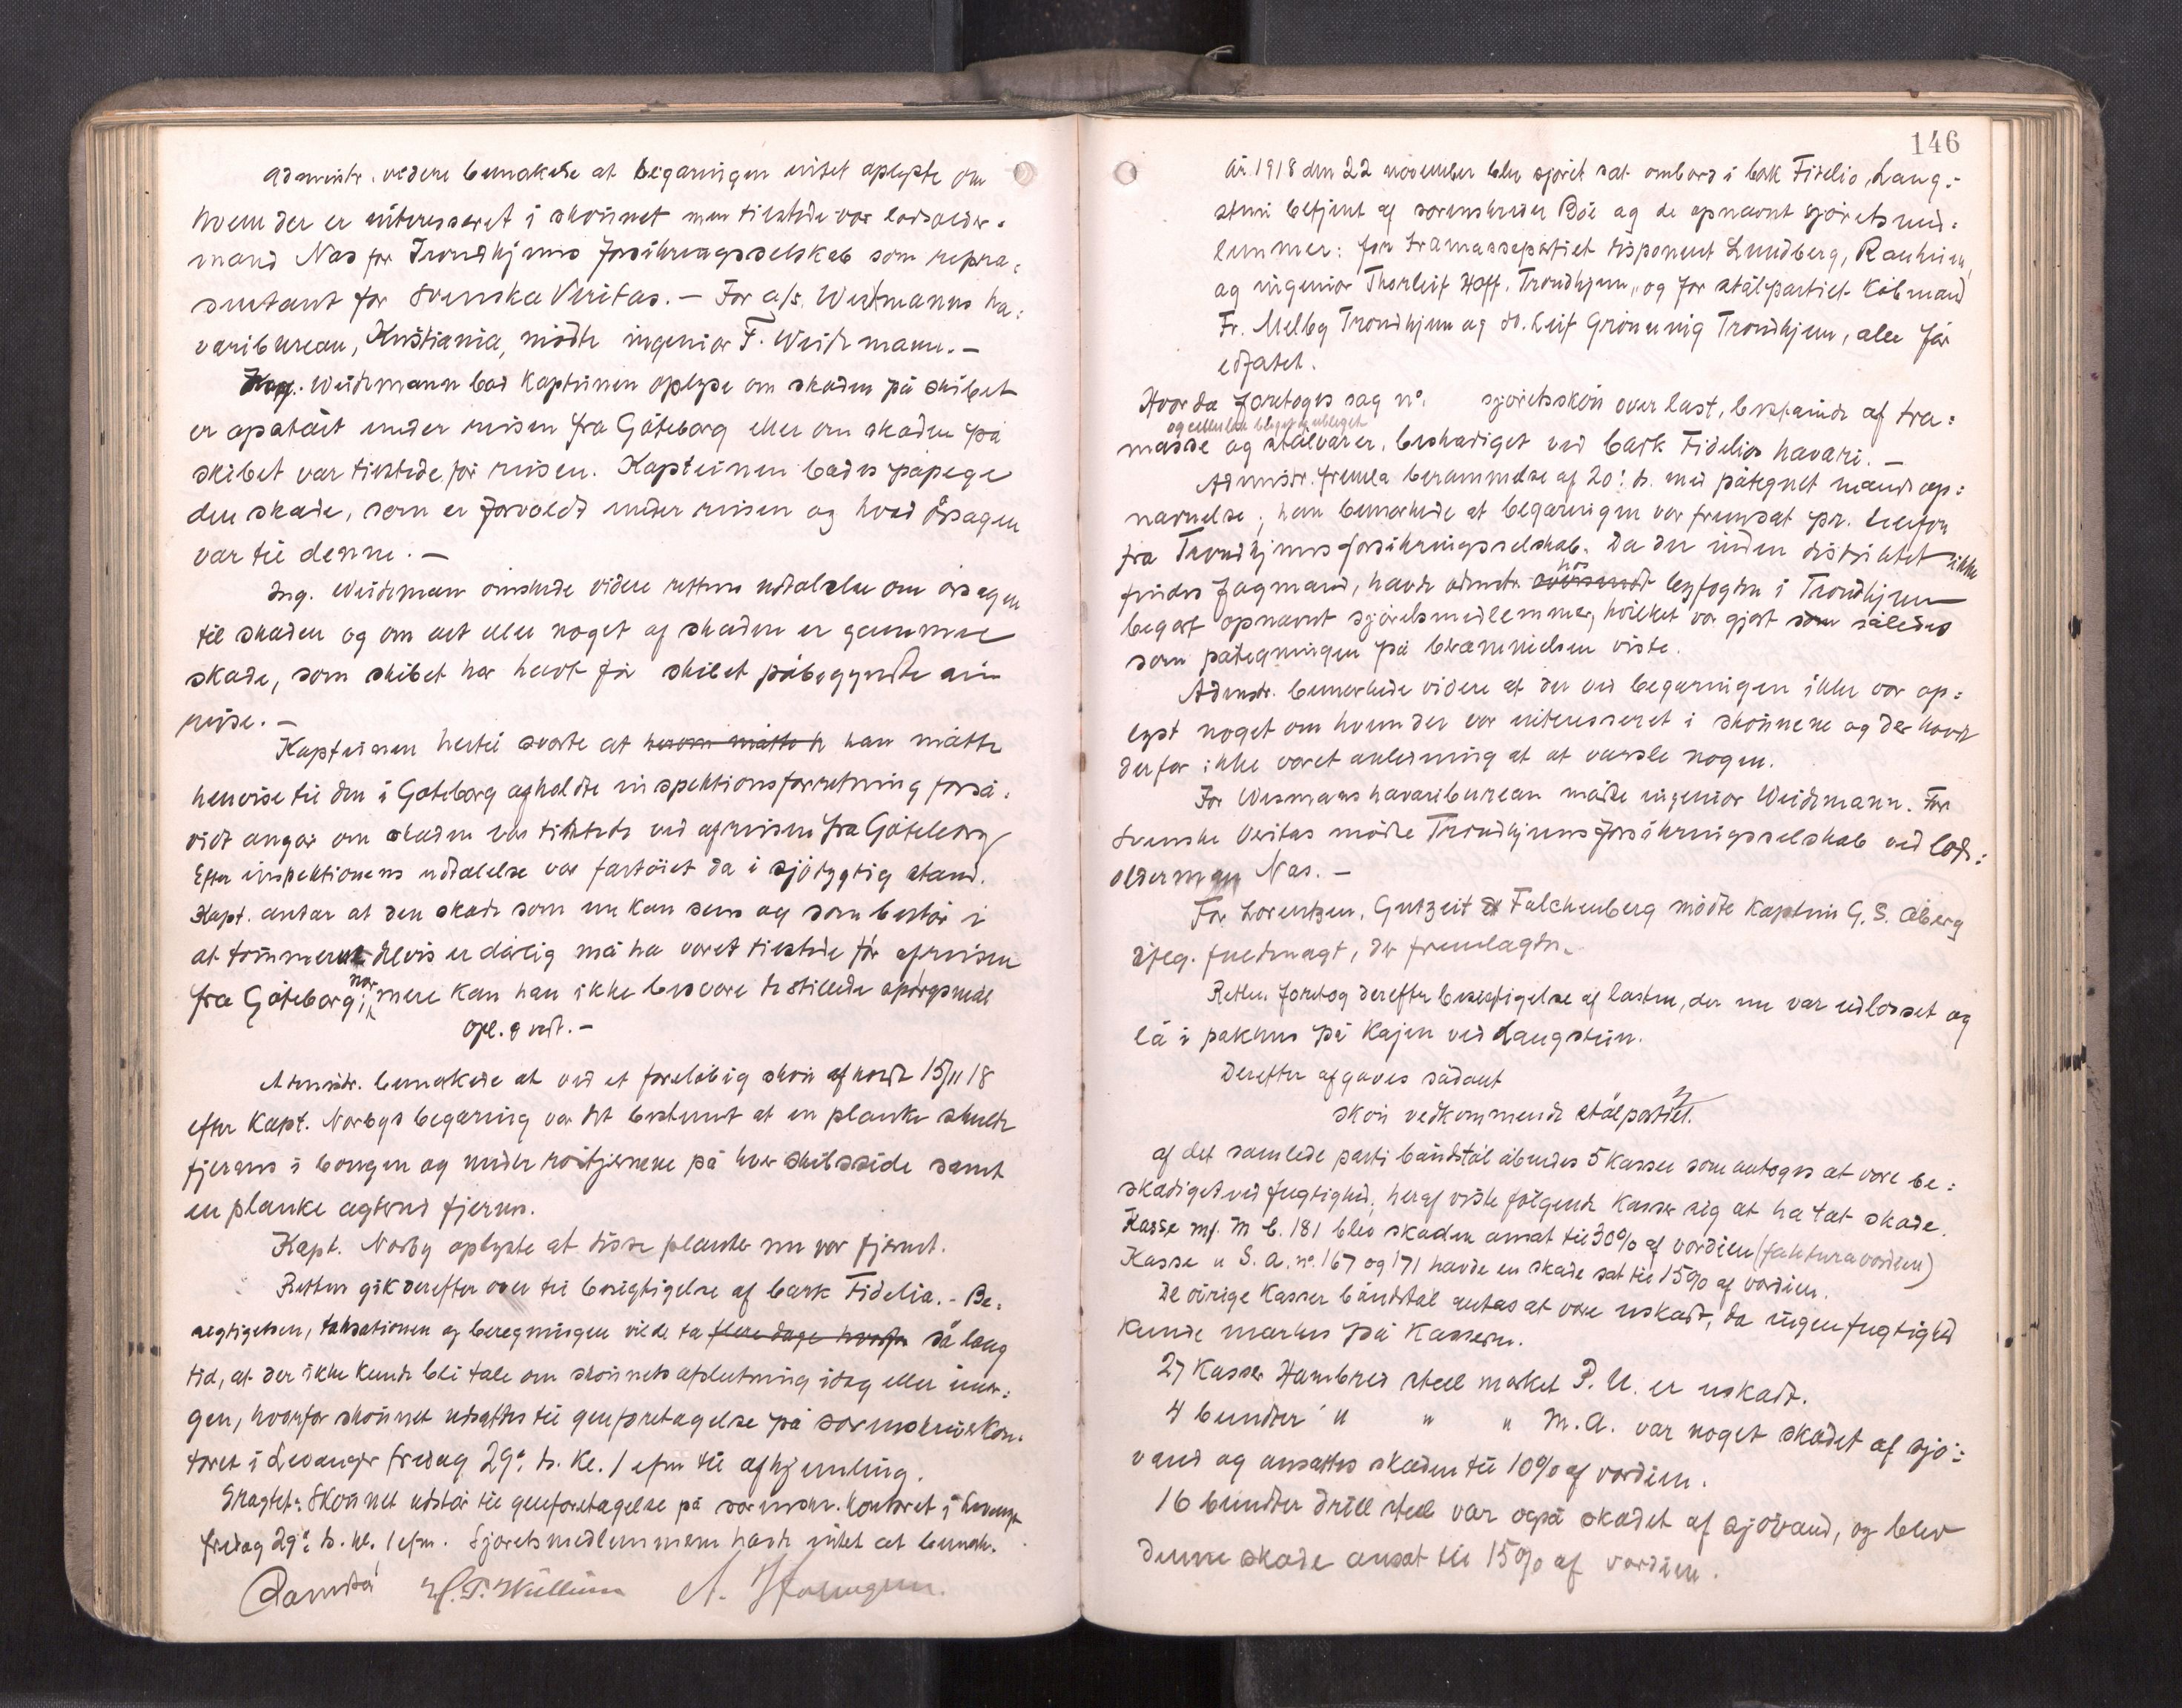 Administr. videre bemærkede at begæringen intet oplyste om
hvem der er interesseret i skönnet men tilstede var lodsolder-
mand Næs for Trondhjems forsikringsselskab som repræ:
sentant for Svenska Veritas. — For a/s. Weidmanns ha:
varibureau, Kristiania, mödte ingeniör F. Weidemann. —
Ing. Weidemann bad kapteinen oplyse om skaden på skibet
er opståt under reisen fra Göteborg eller om skaden på
skibet var tilstede för reisen. Kapteinen bades påpege
den skade, som er forvoldt under reisen og hvad årsagen
var til denne. —
Ing. Weideman önskede videre rettens udtalelse om årsagen
til skaden og om alt eller noget af skaden er gammel
skade, som skibet har havt för skibet påbegyndte sin
reise. —
Kapteinen hertil svarte at herom måtte h han måtte
henvise til den i Göteborg afholdte inspektionsforretning forså-
vidt angår om skaden var tilstede ved afreisen fra Göteborg
Efter inspektionens udtalelse var fartöiet da i sjödygtig stand.
Kapt. antar at den skade som nu kan sees og som består i
at tömmeret delvis er dårlig må ha været tilstede för afreisen
fra Göteborg; nær mere kan han ikke besvare de stillede spörgsmål
Opl. & vedt. —
Administr. bemærkede at ved et foreløbig skön afholdt 15/11 18
efter Kapt. Norbys begæring var det bestemt at en planke skulde
fjernes i bougen og under röstjernene på hver skibsside samt
en planke agterud fjernes.
Kapt. Norby oplyste at disse planker nu var fjernet.
Retten gik derefter over til besigtigelse af bark Fidelia. - Be-
sigtigelsen, taksationen og beregningen vilde ta flere dage hvorfor så lang
tid, at der ikke kunde bli tale om skönnets afslutning idag eller imor:
gen, hvorfor skönnet udsattes til genforetagelse på sorenskriverkon-
toret i Levanger fredag 29: ds. kl. 1 efm til afhjemling.
Eragtet: Skönnet udstår til genforetagelse på sorenskr. kontoret i Levanger
fredag 29: ds. kl. 1 efm. Sjöretsmedlemmerne havde intet at bemerk.
146
År 1918 den 22 november blev sjöret sat ombord i bark Fidelio, Lang:
stein betjent af sorenskriver Böe og de opnævnt sjöretsmed:
lemmer: for tramassepartiet disponent Lundberg, Ranheim,
og ingeniör Thorleif Hoff, Trondhjem, og for stålpartiet köbmand
Fr. Melby Trondhjem og do. Leif Gröneng Trondhjem, alle för
edfæstet.
Hvorda foretoges sag no. sjöretsskön over last, bestående af træ:
og cellulose bleget og ubleget
masse og stålvarer, beskadiget ved bark Fidelios havari. —
Administr. fremla berammelse af 20: ds. med påtegnet mandsop:
nævnelse; han bemærkede at begæringen var fremsat pr. telefon
fra Trondhjems forsikringsselskab. Da der inden distriktet ikke
findes fagmænd, havde admstr. hos byfogden i Trondhjem
begært opnævnt sjöretsmedlemmer, hvilket var gjort som således
som påtegningen på berammelsen viste.
Admstr. bemærkede videre at der ved begæringen ikke var op:
lyst noget om hvem der var interesseret i skönnene og der havde
derfor ikke været anledning at at varsle nogen.
For Weidmans havaribureau mödte ingeniör Weidemann. For
Svenske Veritas mödte Trondhjems forsikringsselskab ved lods:
olderman Næs. —
For Lorentzen, Gutzeit & Falchenberg mödte kaptein G. S. Åberg
ifölg. fuldmagt, der fremlagdes.
Retten foretog derefter besigtigelse af lasten, der nu var udlosset og
lå i pakhus på kajen ved Langstein.
Derefter afgaves sådant
skön vedkommende stålpartiet.
af det samlede parti båndstål åbnedes 5 kasser som antoges at være be:
skadiget ved fugtighed; heraf viste fölgende kasser sig at ha tat skade.
Kasse mf. M b. 181 blev skaden ansat til 30% af værdien (fakturaværdien)
Kasse " S. A. no. 167 og 171 havde en skade sat til 15% af værdien.
De övrige kasser båndstål antas at være uskadt, da ingen fugtighed
kunde mærkes på kasserne.
27 kasser Hambres steel mærket P. U. er uskadt.
4 bundter " " " M.A. var noget skadet af sjö:
vand og ansattes skaden til 10% af værdien.
16 bundter drill steel var også skadet af sjövand, og blev
denne skade ansat til 15% af værdien.